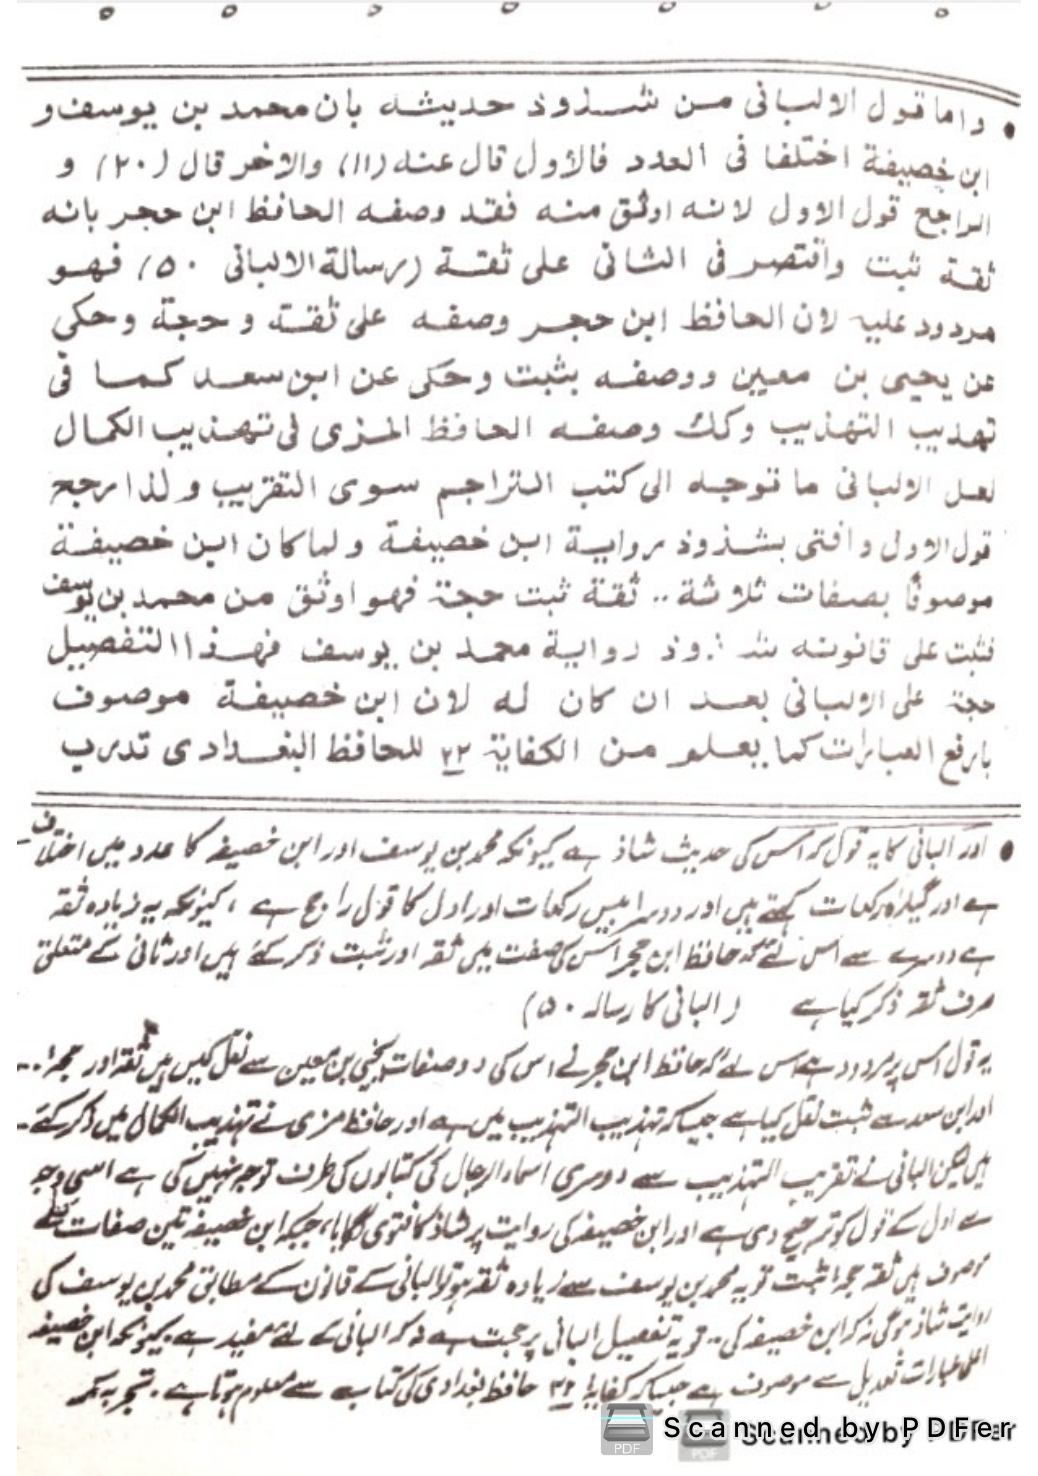 • واما قول الالبانى من شذوذ حديثه بان محمد بن يوسف و
ابن خصيفة اختلفا فى العدد فالاول قال عنه (۱۱) والاخر قال (۲۰) و
الراجح قول الاول لانه اوثق منه فقد وصفه الحافظ ابن حجر بانه
ثقة ثبت واقتصر فى الثانى على ثقة (رسالة الالبانى ۵۰) فهو
مردود عليه لان الحافظ ابن حجر وصفه على ثقة و حجة وحكى
عن يحيى بن معين ووصفه بثبت وحكى عن ابن سعد كما فى
تهذيب التهذيب وكك وصفه الحافظ المزى فى تهذيب الكمال
لعل الالبانى ما توجه الى كتب التراجم سوى التقريب ولذا رجح
قول الاول وافتى بشذوذ رواية ابن خصيفة ولما كان ابن خصيفة
موصوفا بصفات ثلاثة .. ثقة ثبت حجة فهو اوثق من محمد بن يوسف
فثبت على قانونه شذوذ رواية محمد بن يوسف فهذا التفصيل
حجة على الالبانى بعد ان كان له لان ابن خصيفة موصوف
بارفع العبارات كما يعلم من الكفاية ۲۲ للحافظ البغدادى تدرب
• اور البانی کا یہ قول کہ اس کی حدیث شاذ ہے کیونکہ محمد بن یوسف اور ابن خصیفہ کا عدد میں اختلاف
ہے اور گیارہ رکعات کہتے ہیں اور دوسرا بیس رکعات اور اول کا قول راجح ہے ، کیونکہ یہ زیادہ ثقہ
ہے دوسرے سے اس لئے کہ حافظ ابن حجر اس کی صفت میں ثقہ اور ثبت ذکر کئے ہیں اور ثانی کے متعلق
صرف ثقہ ذکر کیا ہے (البانی کا رسالہ ۵۰)
یہ قول اس پر مردود ہے اس لئے کہ حافظ ابن حجر نے اس کی دو صفات یحیی بن معین سے نقل کیں ہیں ثقہ اور حجۃ ..
اور ابن سعد سے ثبت نقل کیا ہے جیسا کہ تہذیب التہذیب میں ہے اور حافظ مزی نے تہذیب الکمال میں ذکر کئے
ہیں لیکن البانی نے تقریب التہذیب سے دوسری اسماء الرجال کی کتابوں کی طرف توجہ نہیں کی ہے اسی وجہ
سے اول کے قول کو ترجیح دی ہے اور ابن خصیفہ کی روایت پر شاذ کا فتوی لگایا، جبکہ ابن خصیفہ تین صفات سے
موصوف ہیں ثقہ حجۃ ثبت تو یہ محمد بن یوسف سے زیادہ ثقہ ہوا تو البانی کے قانون کے مطابق محمد بن یوسف کی
روایت شاذ ہوگی نہ کہ ابن خصیفہ کی .. تو یہ تفصیل البانی پر حجت ہے نہ کہ البانی کے لئے مفید ہے کیونکہ ابن خصیفہ
اعلی عبارات تعدیل سے موصوف ہے جیسا کہ کفایۃ ۲۲ حافظ بغدادی کی کتاب سے معلوم ہوتا ہے .
Scanned by PDFer
Scanned by PDFer